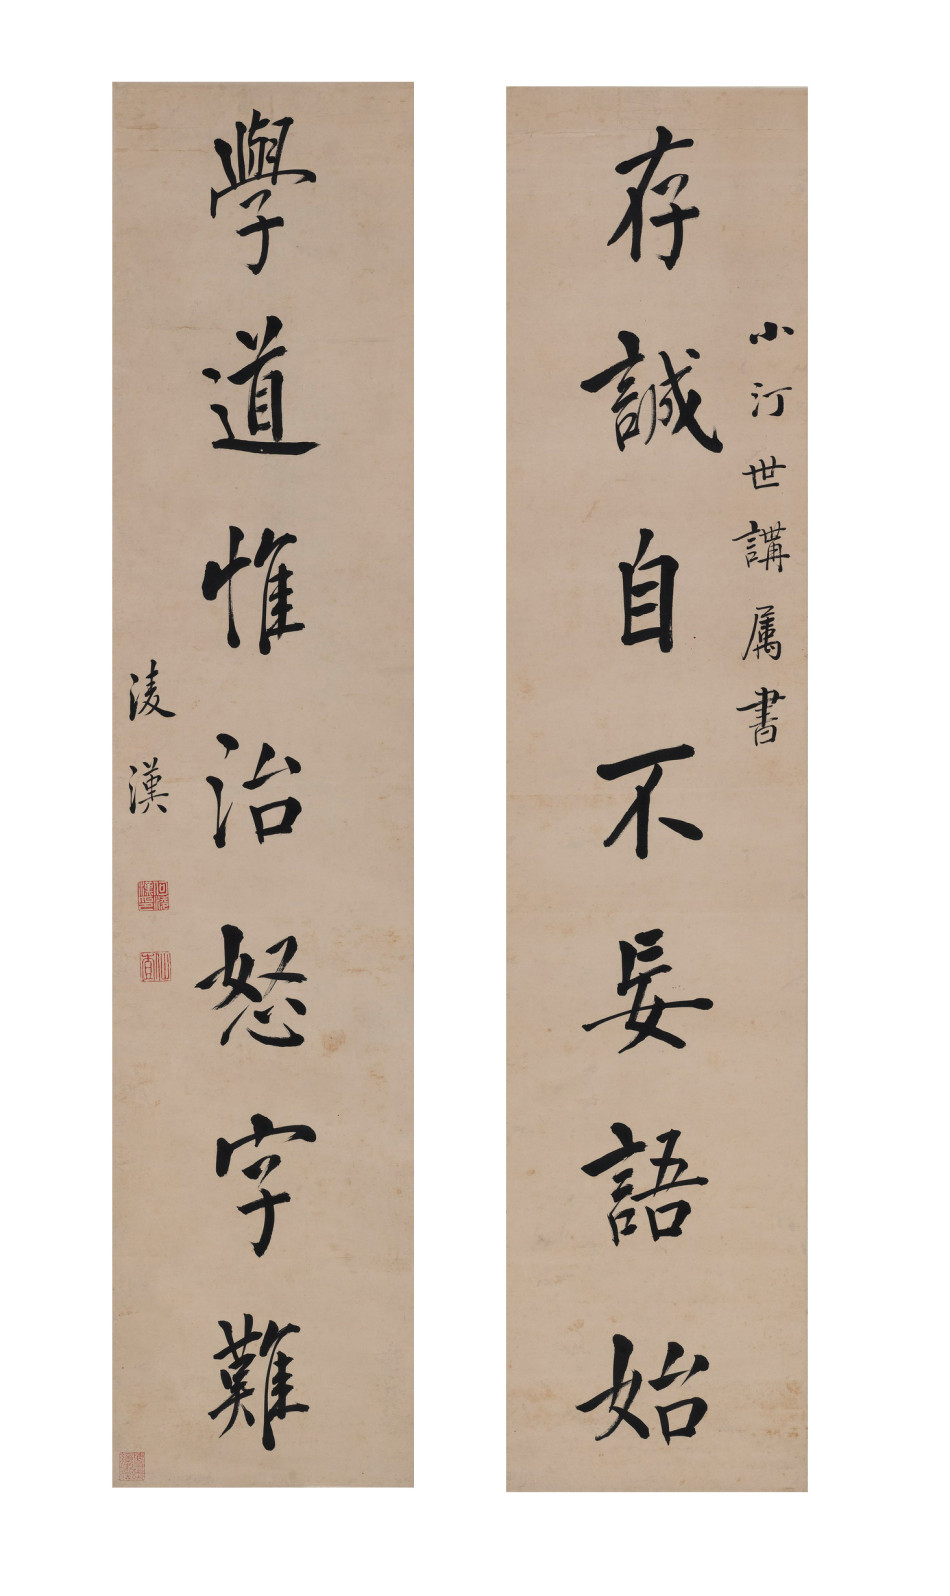 小汀世講属書
存誠自不妄語始
學道惟治怒字難
淩漢